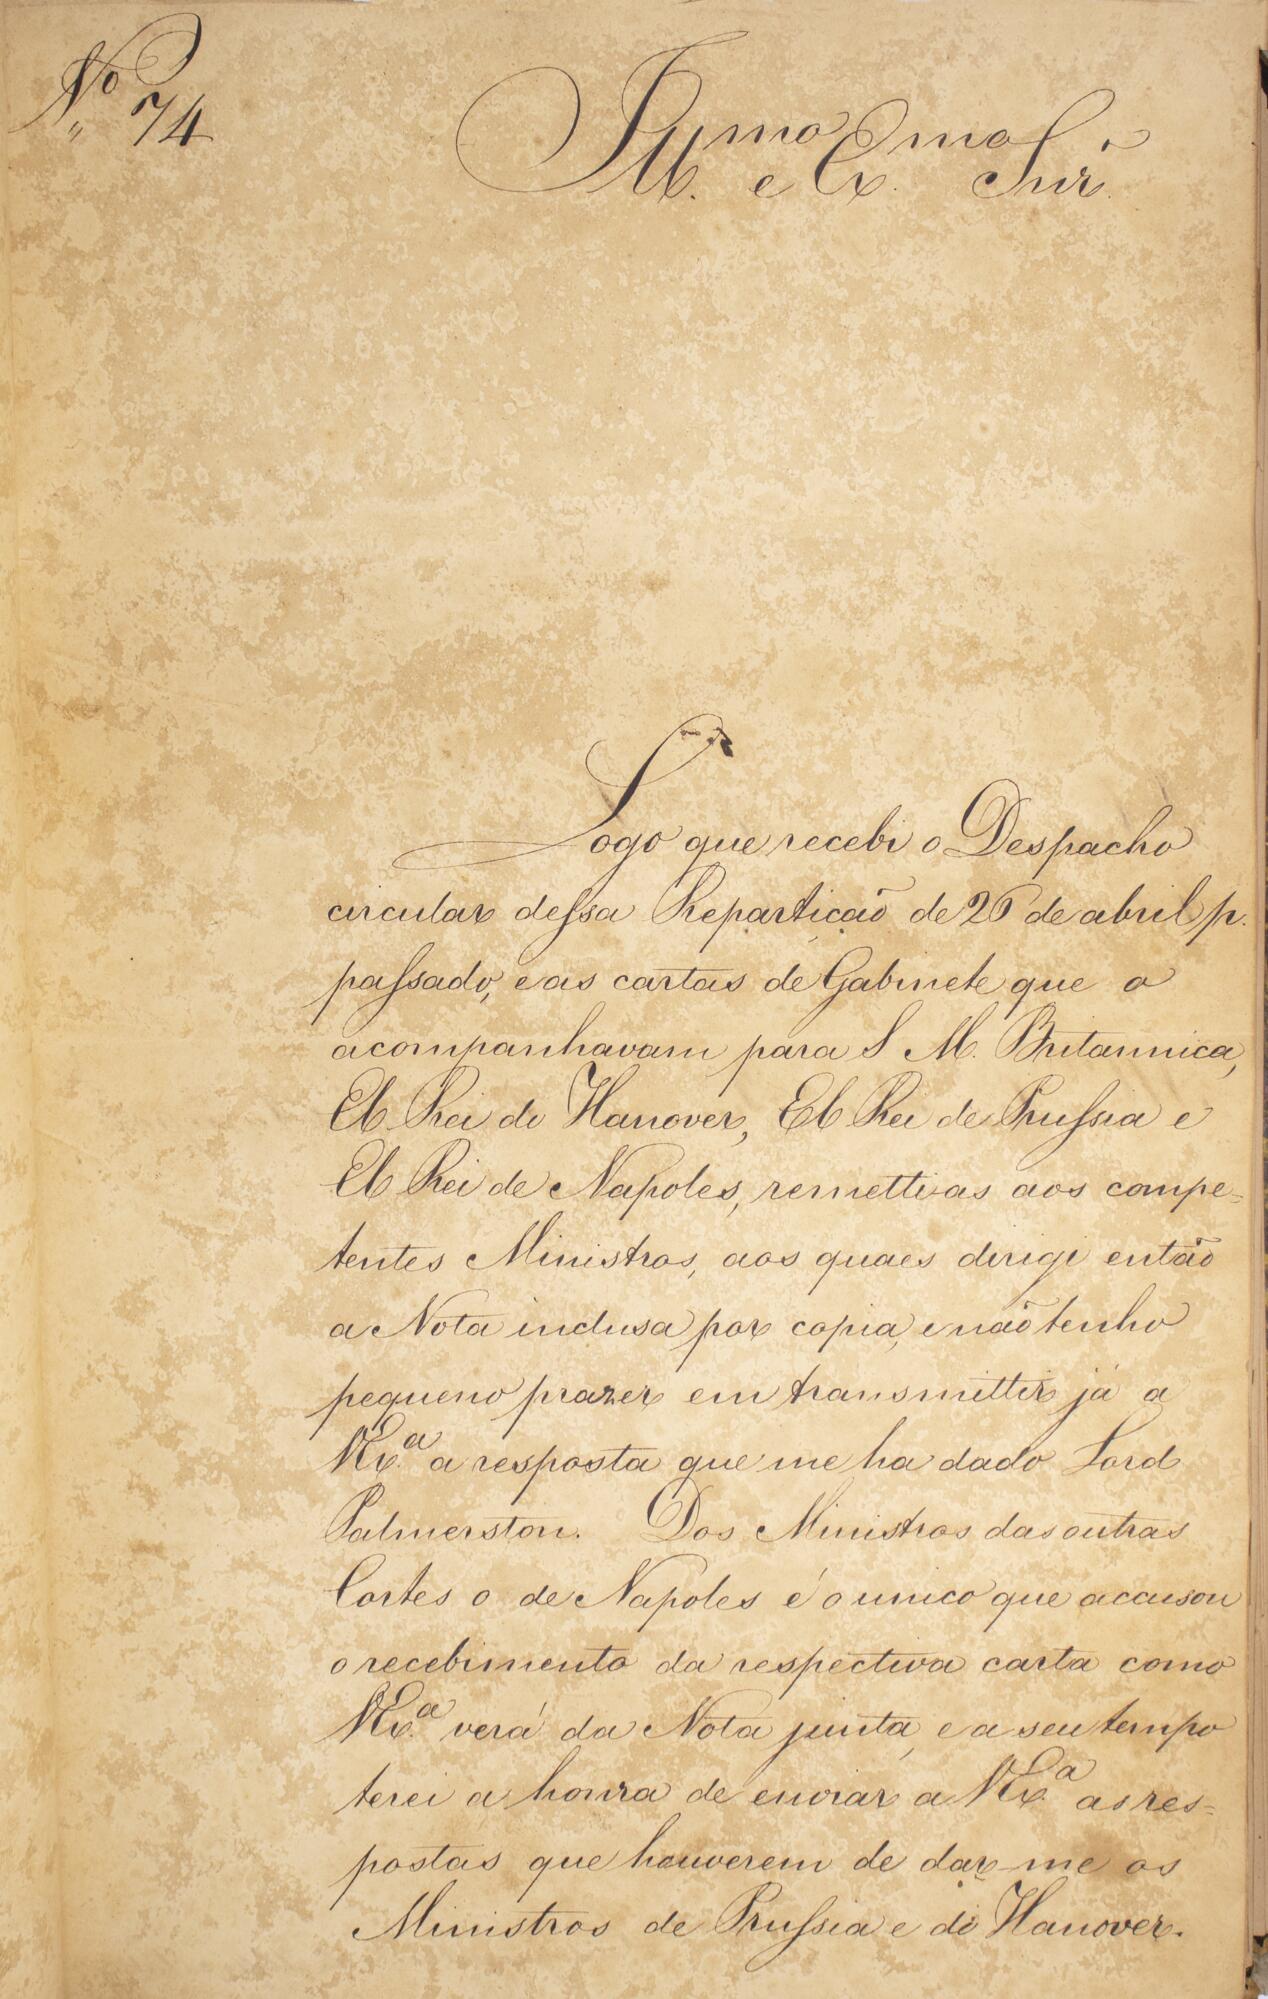 Nº 74
Illmo e Exmo Snr.
Logo que recebi o Despacho
circular dessa Repartição de 26 de abril p.
passado, e as cartas de Gabinete que o
acompanhavam para S M. Britannica,
El Rei de Hanover, El Rei de Prussia e
El Rei de Napoles, remetti-as aos compe-
tentes Ministros, aos quaes dirigi então
a Nota inclusa por copia, e não tenho
pequeno prazer em transmittir já a
VExª a resposta que me ha dado Lord
Palmerston. Dos Ministros das outras
Cortes o de Napoles é o unico que accusou
o recebimento da respectiva carta como
VExª verá da Nota junta, e a seu tempo
terei a honra de enviar a VExª as res-
postas que houverem de dar-me os
Ministros de Prussia e de Hanover.